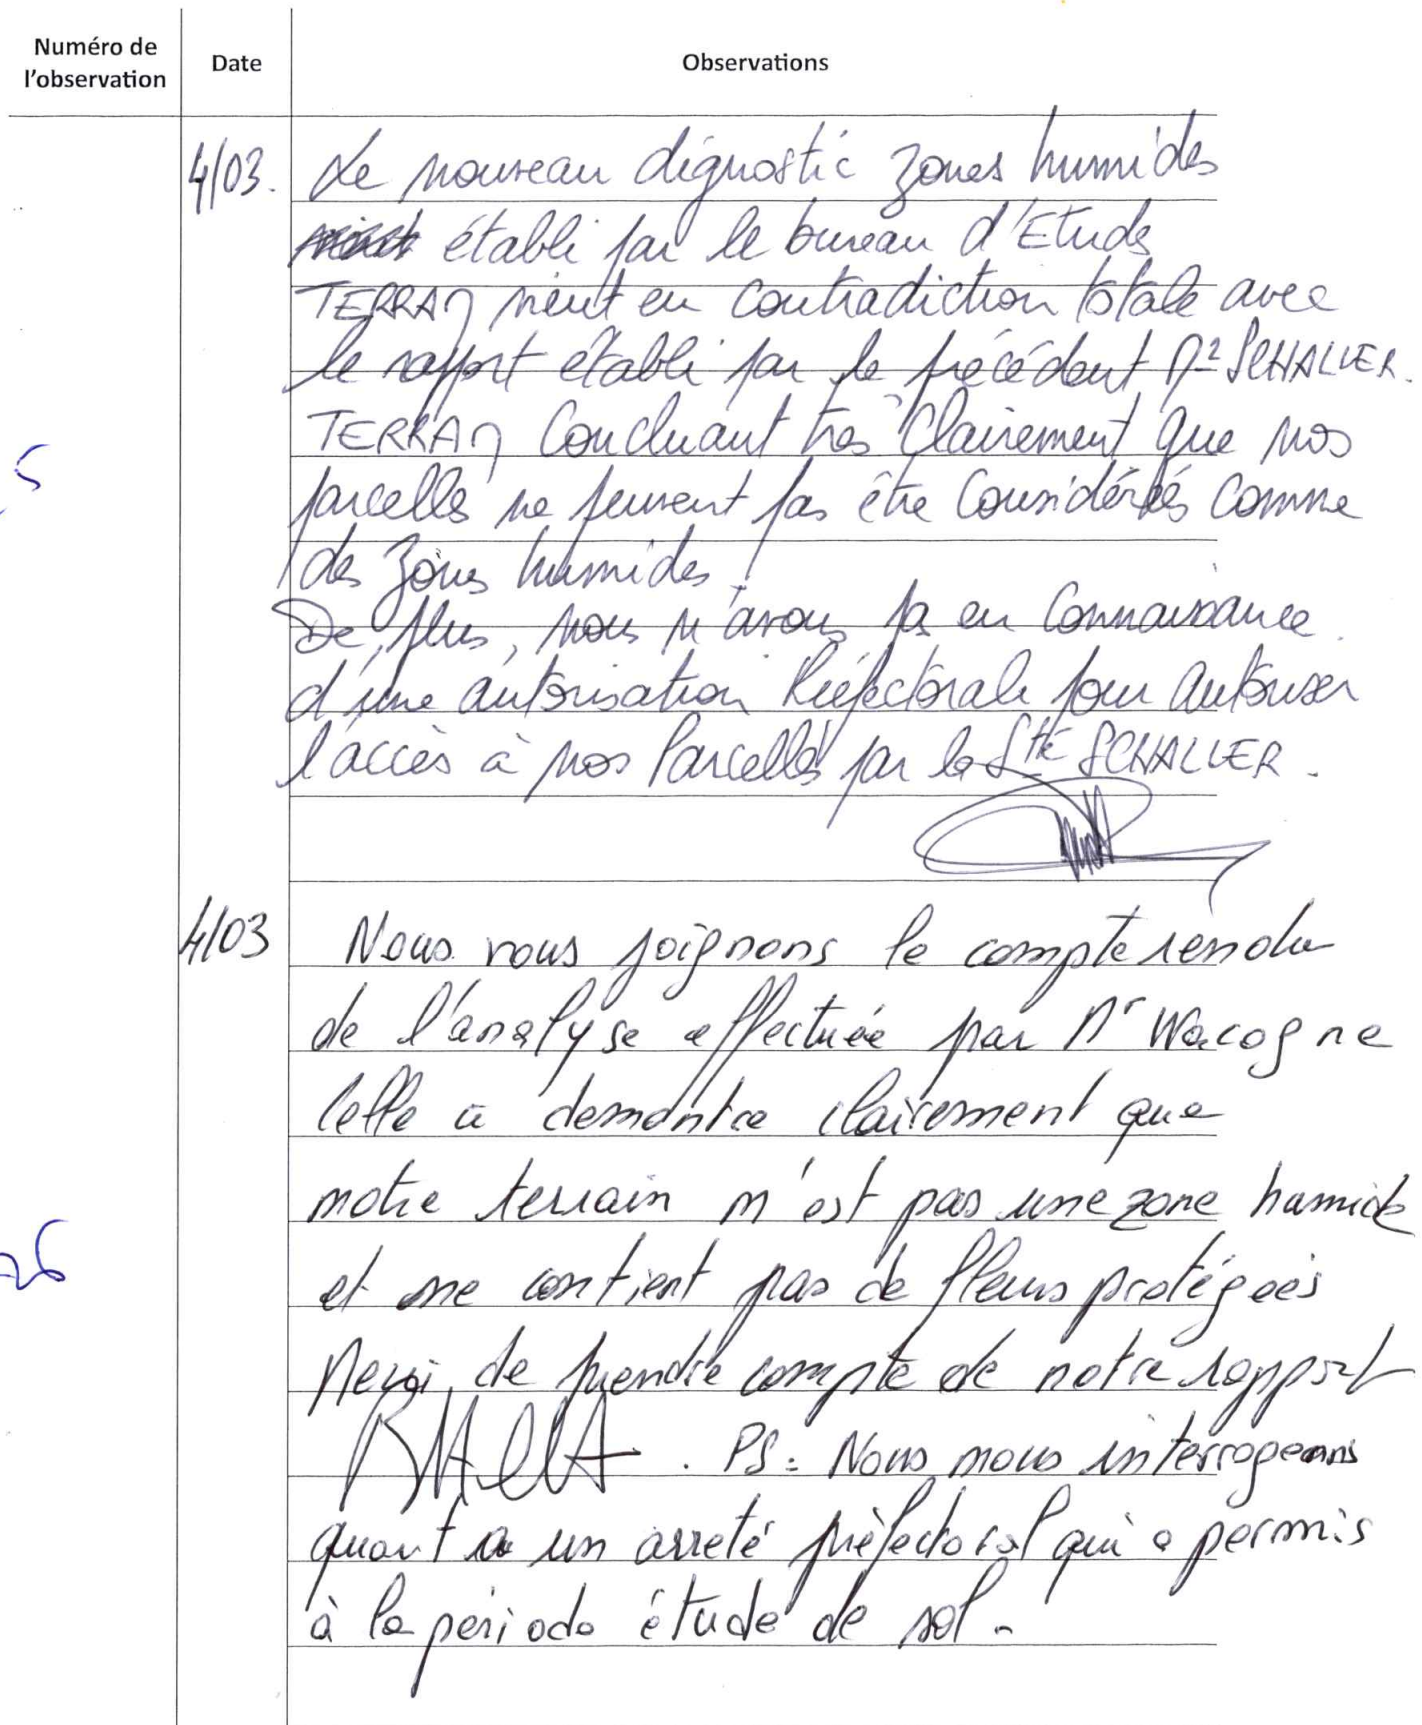 Numéro de
l'observation
Date
Observations
4/03. Le nouveau dignostic zones humides
établi par le bureau d'Etudes
TERRAM vient en contradiction totale avec
le rapport établi par le précédent Mr SCHALLER.
TERRAM Concluant très Clairement que nos
parcelles ne peuvent pas être Considérées comme
des zones humides.
De plus, nous n'avons pas eu Connaissance
d'une autorisation Préfectorale pour autoriser
l'accès à nos Parcelles par la Sté SCHALLER.
5
4/03 Nous vous joignons le compte rendu
de l'analyse effectuée par Mr Wacogne
Celle a demontre clairement que
notre terrain n'est pas une zone humide
et ne contient pas de fleurs protégées
Merci de prendre compte de notre rapport
. PS: Nous nous interrogeons
quant a un arreté préfectoral qui a permis
à la période étude de sol.
26